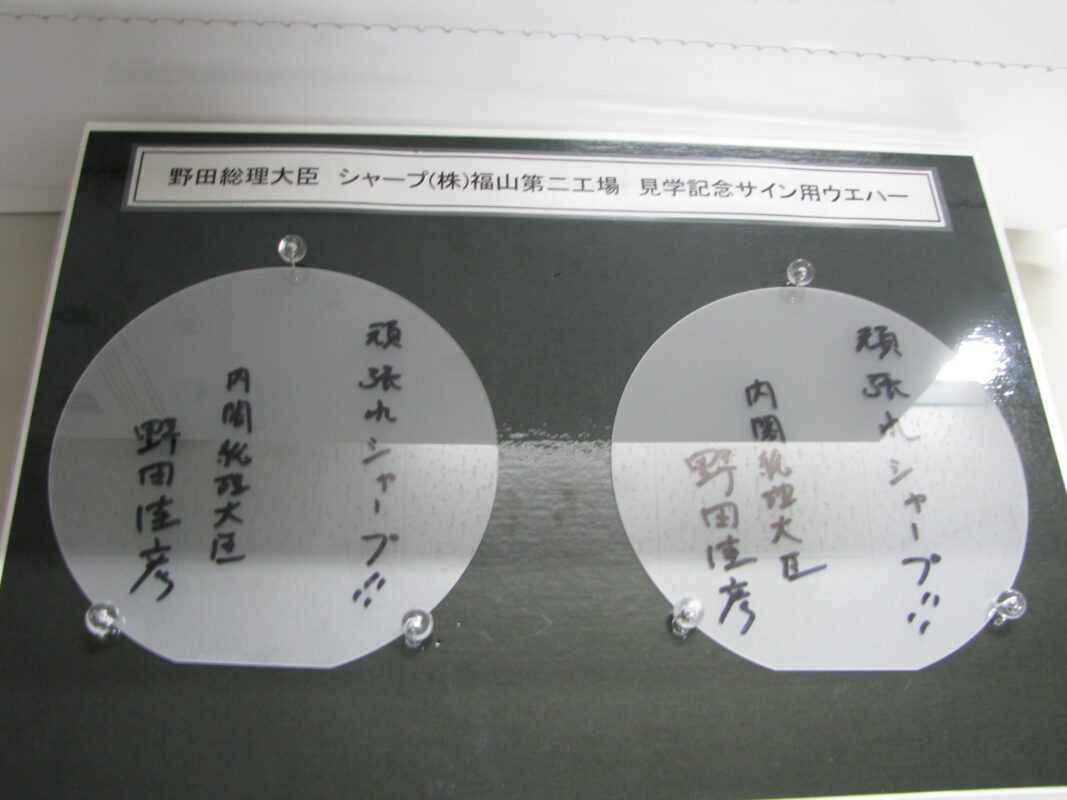 野田総理大臣　シャープ(株)福山第二工場　見学記念サイン用ウエハー
頑張れシャープ!!
内閣総理大臣
野田佳彦
頑張れシャープ!!
内閣総理大臣
野田佳彦